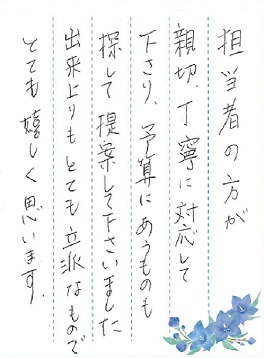 担当者の方が
親切、丁寧に対応して
下さり、予算にあうものも
探して提案して下さいました
出来上りもとても立派なもので
とても嬉しく思います。